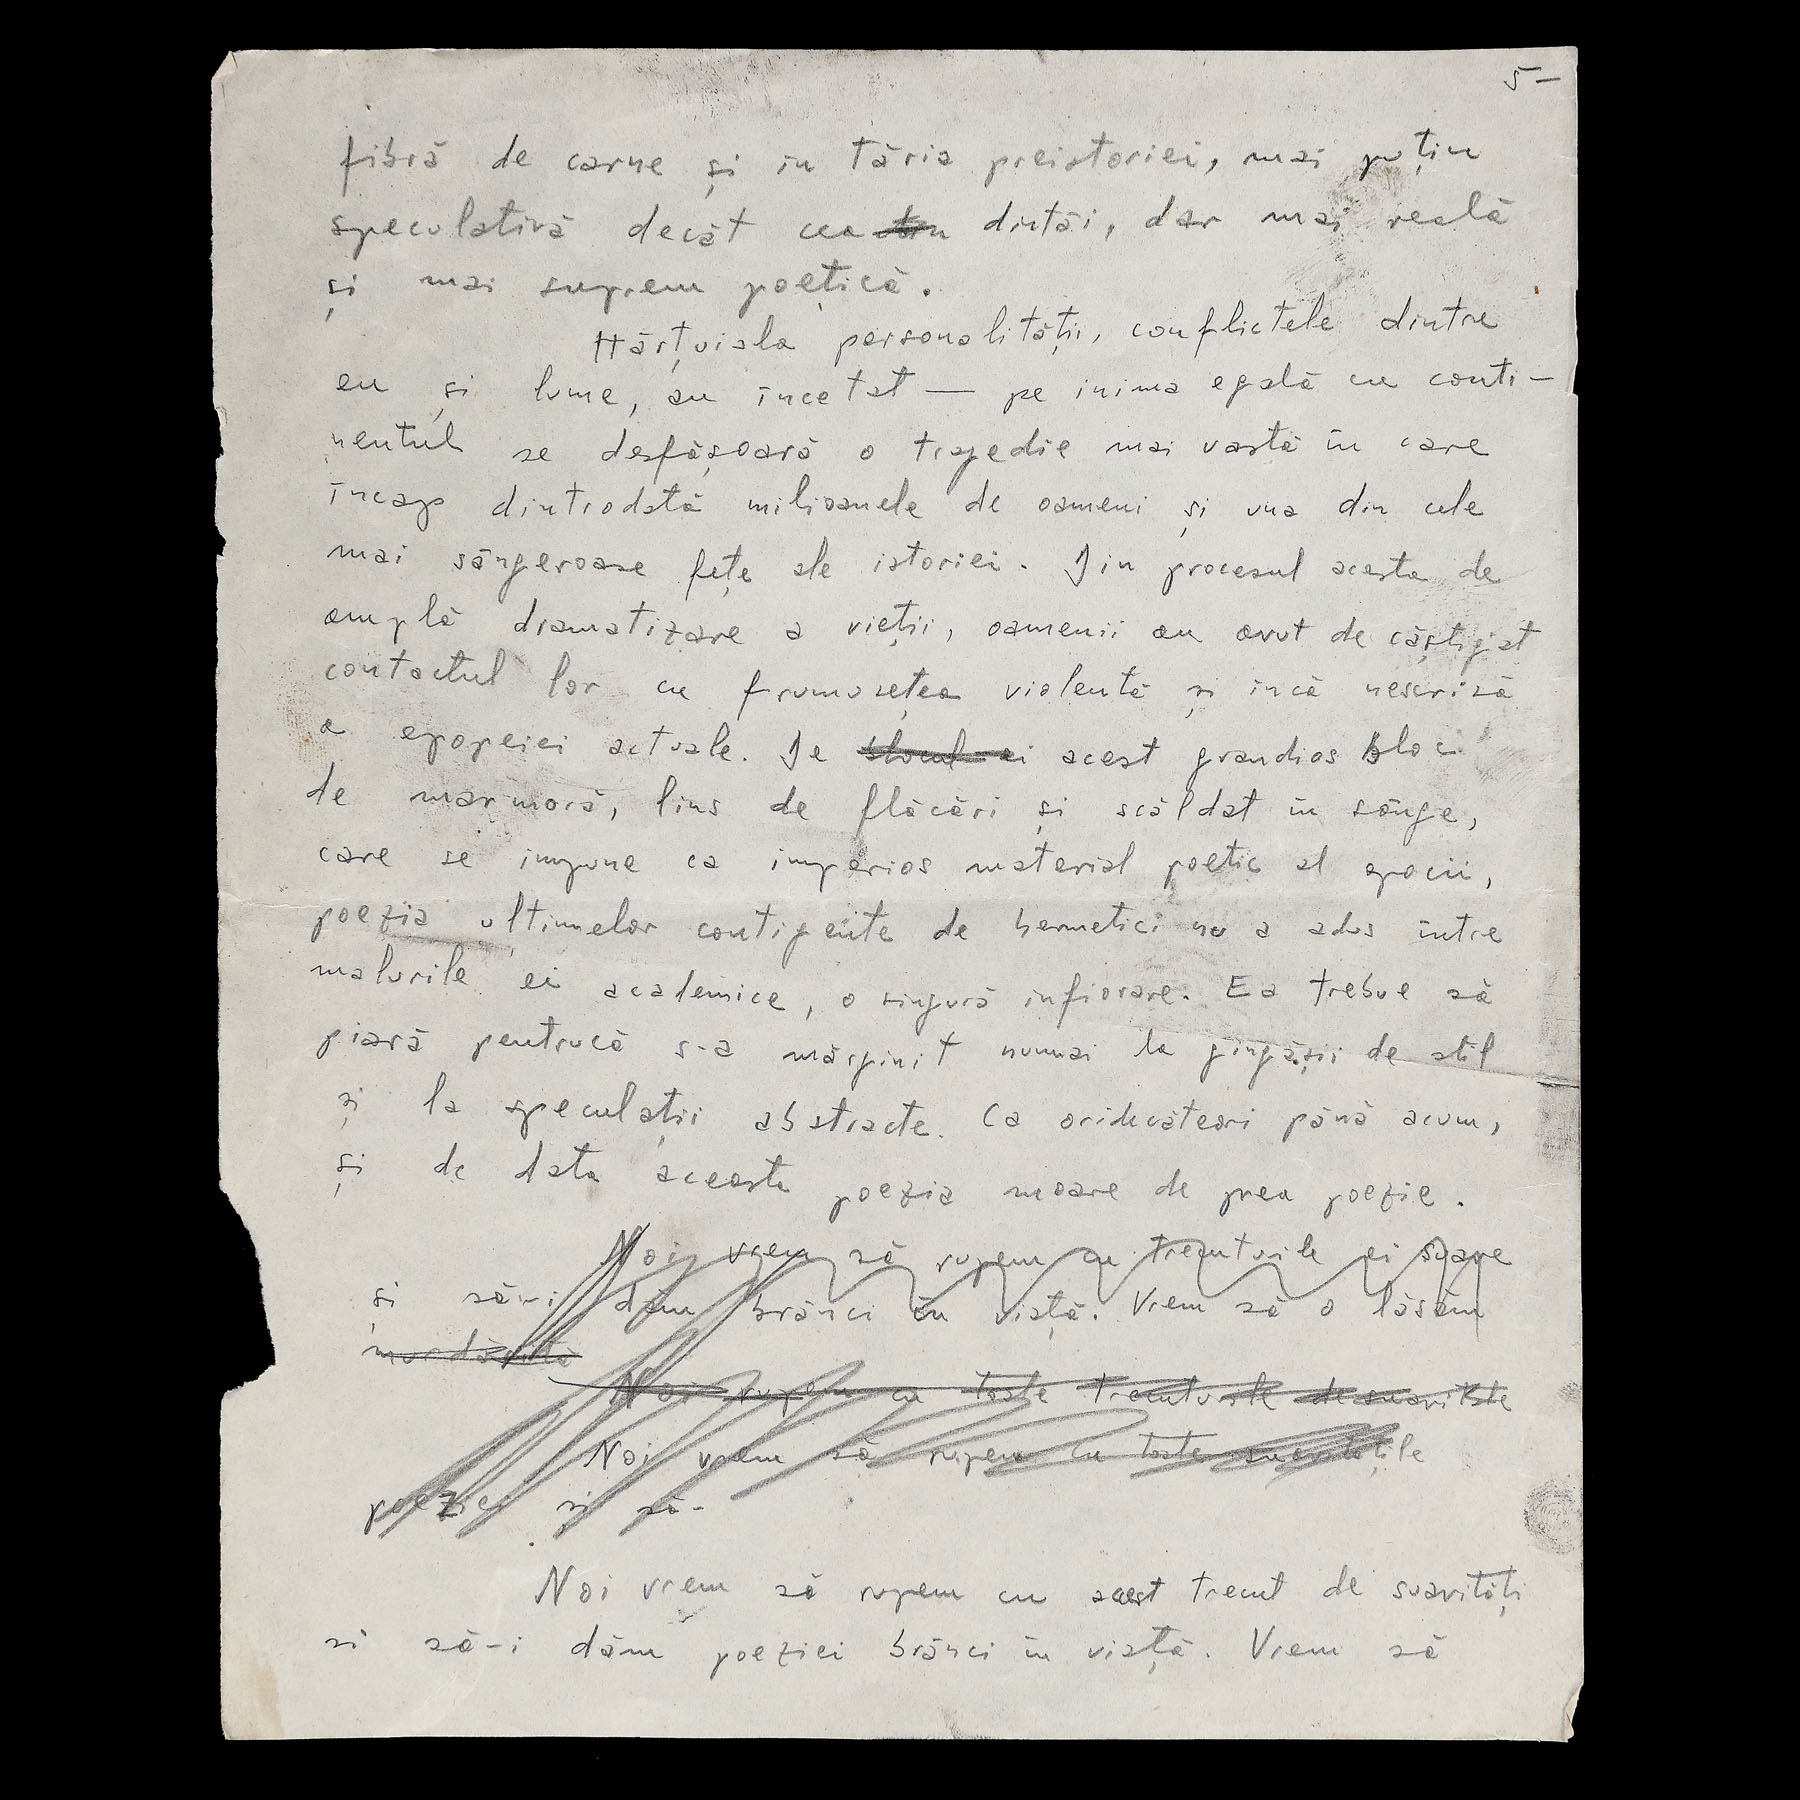 5-
fibră de carne și in tăria preistoriei, mai puțin
speculativă decât cea din dintăi, dar mai reală
și mai suprem poetică.
Hărțuiala personalității, conflictele dintre
eu și lume, au încetat — pe inima egală cu conti-
nentul se desfășoară o tragedie mai vastă în care
încap dintrodată milioanele de oameni și una din cele
mai sângeroase fețe ale istoriei. Din procesul acesta de
amplă dramatizare a vieții, oamenii au avut de câștigat
contactul lor cu frumusețea violentă și încă nescrisă
a epopeiei actuale. De blocul ei acest grandios bloc
de marmoră, lins de flăcări și scăldat în sânge,
care se impune ca imperios material poetic al epocii,
poezia ultimelor contigente de hermetici nu a adus între
malurile ei academice, o singură infiorare. Ea trebue să
piară pentrucă s-a mărginit numai la gingășii de stil
și la speculații abstracte. Ca oridecâteori până acum,
și de data aceasta poezia moare de prea poezie.
Noi vrem să rupem cu trecuturile ei suave
și să-i dăm brânci în viață. Vrem să o lăsăm
murdărită
Noi rupem cu toate trecuturile de suavitate
Noi vrem să rupem cu toate suavitățile
poeziei și să-
Noi vrem să rupem cu acest trecut de suavități
și să-i dăm poeziei brânci în viață. Vrem să